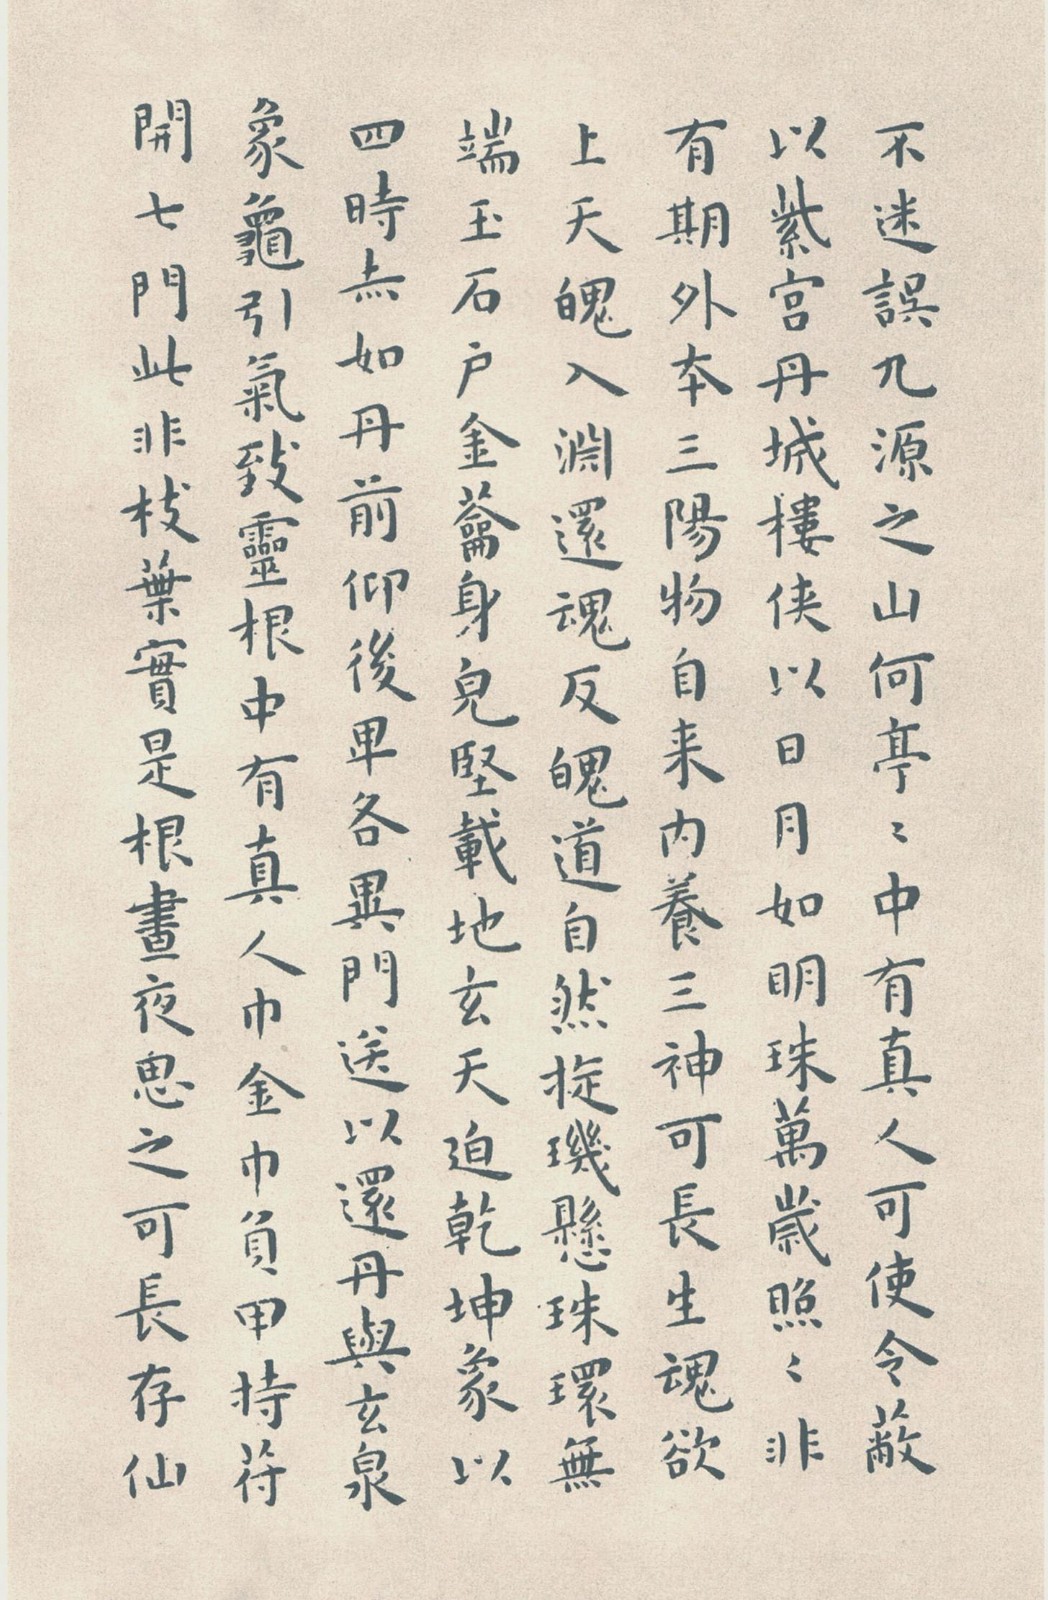 不迷誤九源之山何亭〻中有真人可使令蔽
以紫宮丹城樓俠以日月如明珠萬歲照〻非
有期外本三陽物自来內養三神可長生魂欲
上天魄入淵還魂反魄道自然挻璣懸珠環無
端玉石戶金蘥身皃堅載地玄天迫乾坤象以
四時赤如丹前仰後卑各異門送以還丹與玄泉
象龜引氣致靈根中有真人巾金巾負甲持苻
開七門此非枝葉實是根晝夜思之可長存仙